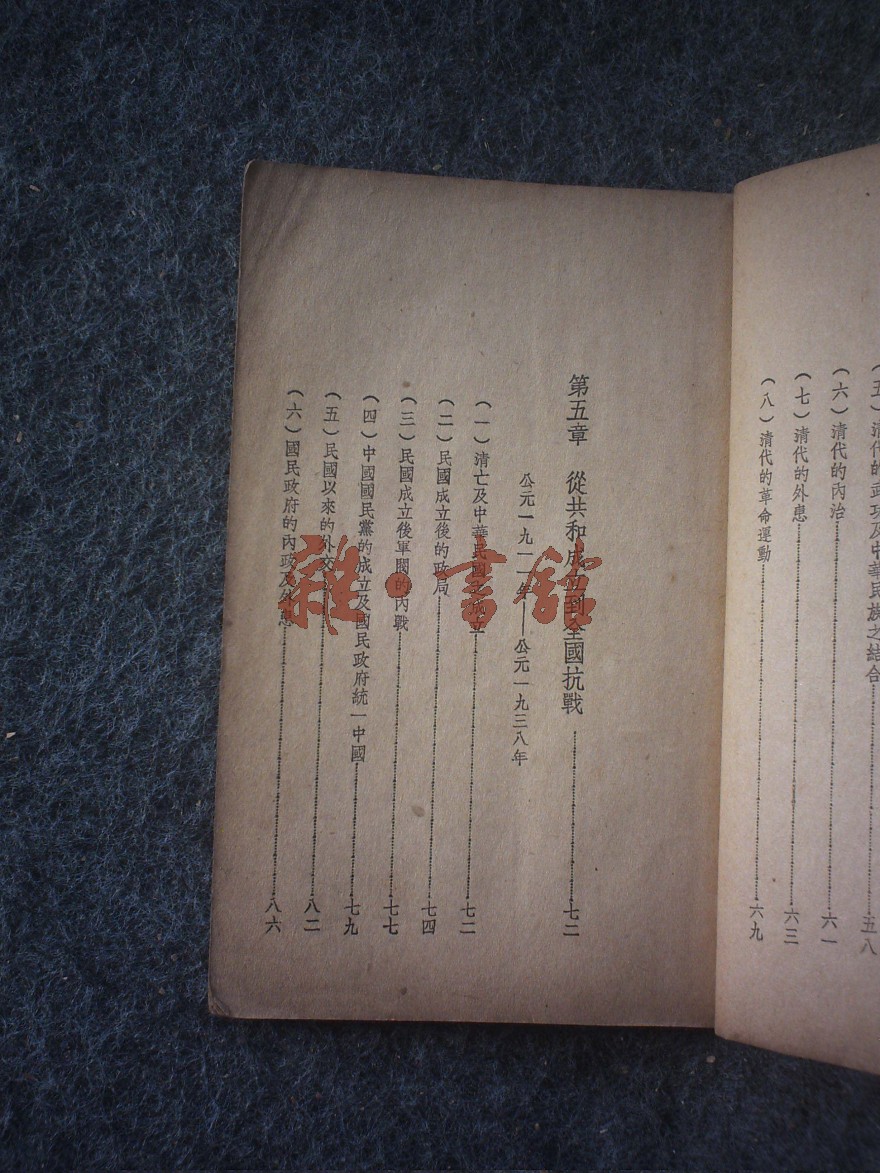 (五)清代的武功及中華民族之結合……五八
(六)清代的內治……六一
(七)清代的外患……六三
(八)清代的革命運動……六九
第五章 從共和成立到全國抗戰……七二
公元一九一一年——公元一九三八年
(一)清亡及中華民國之成立……七二
(二)民國成立後的政局……七四
(三)民國成立後軍閥的內戰……七七
(四)中國國民黨的成立及國民政府統一中國……七九
(五)民國以來的外交……八二
(六)國民政府的內政及外患……八六
雜·書館